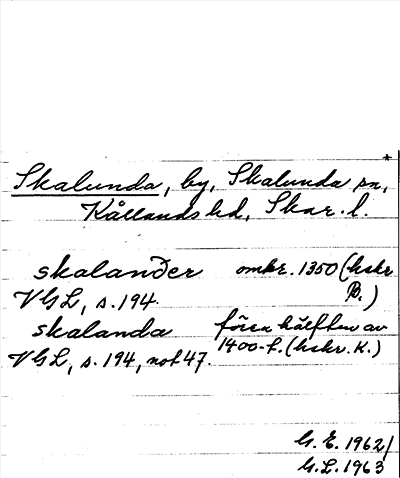 +
Skalunda, by, Skalunda sn,
Kållands hd, Skar. l.
skalander omkr. 1350 (hskr B.)
VGL, s. 194.
skalanda förra hälften av
VGL, s. 194, not 47. 1400-t. (hskr. K.)
G. E. 1962/
G. L. 1963